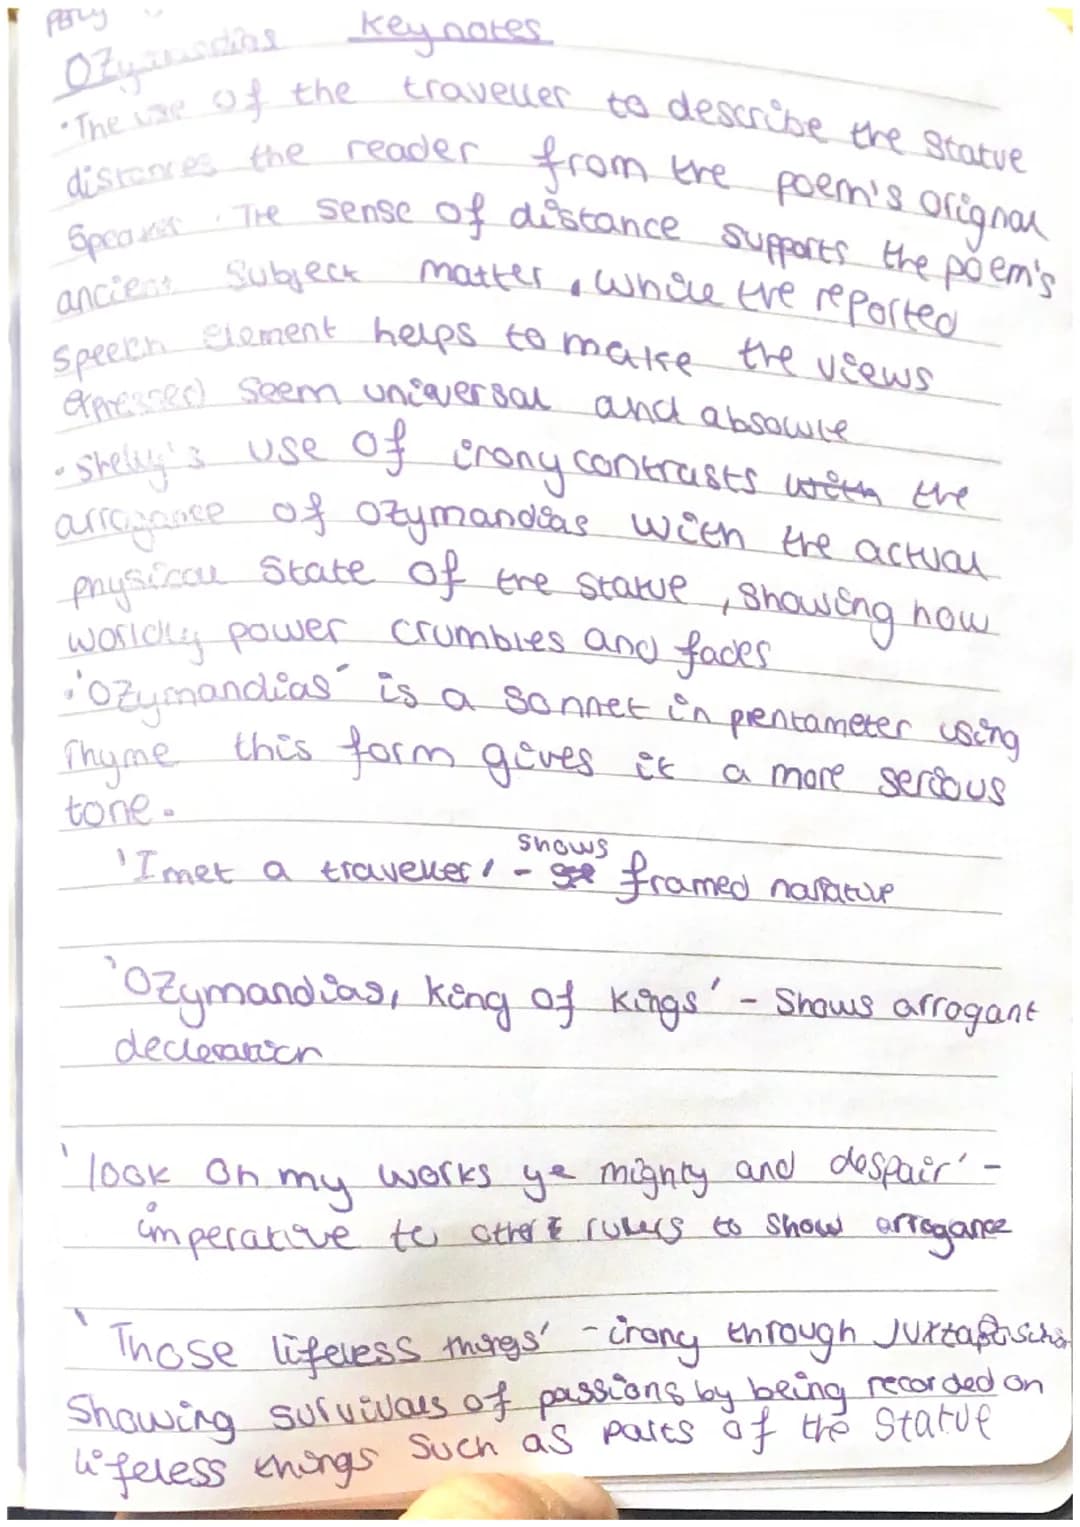 Ozymandias Key notes
• The use of the traveller to describe the Statue
distances the reader from the poem's orignal
Speaker. The sense of distance supports the poem's
ancient Subject matter, while the reported
Speech element helps to make the views
expressed seem universal and absolute
• Shelly's use of irony contrasts with the
arrogance of Ozymandias with the actual
physical State of the statue, showing how
worldly power crumbles and fades
• 'Ozymandias' is a sonnet in pentameter using
rhyme this form gives it a more serious
tone.
shows
'I met a traveller' - framed narrative
'Ozymandias, king of kings' - Shows arrogant
decleration
'look on my works ye mighty and despair' -
imperative to other rulers to show arrogance
'Those lifeless things' - irony through Juxtaposition
Showing survivals of passions by being recorded on
lifeless things such as parts of the Statue